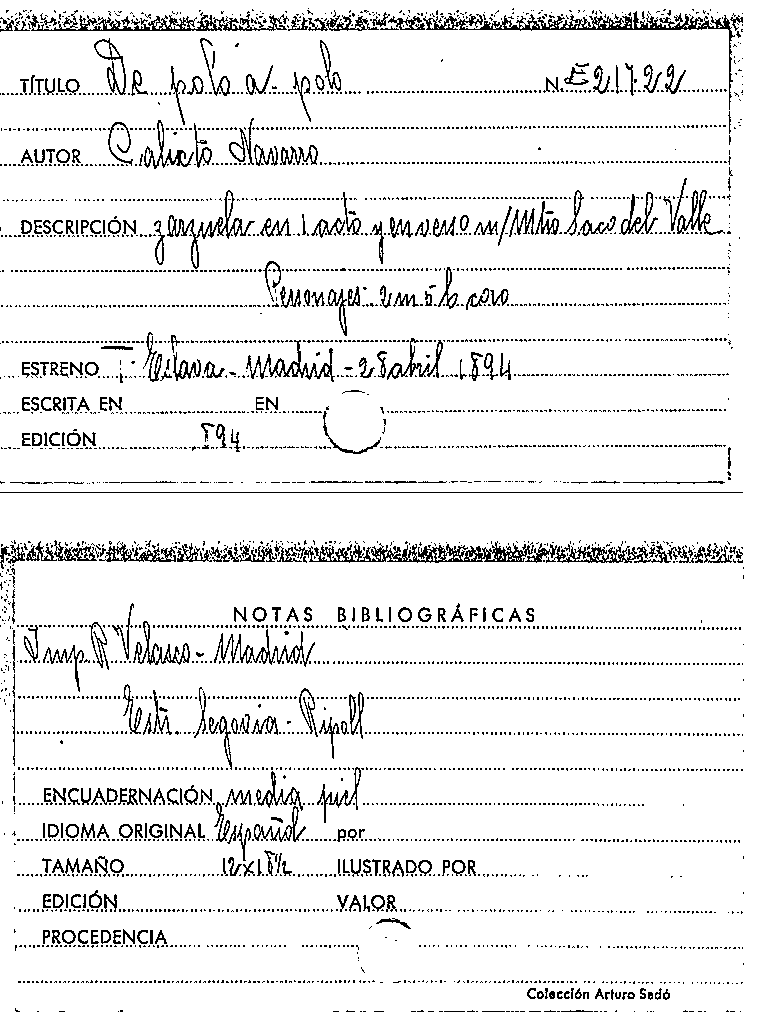 TÍTULO De polo a polo N. E 217-22
AUTOR Calixto Navarro
DESCRIPCIÓN zarzuela en 1 acto y en verso m/ Mtro Saco del Valle
Personajes 2 m 5 h coro
ESTRENO T. Eslava - Madrid - 28 abril 1894
ESCRITA EN EN
EDICIÓN 1894
NOTAS BIBLIOGRÁFICAS
Imp R Velasco - Madrid
Estr. Segovia - Ripoll
ENCUADERNACIÓN media piel
IDIOMA ORIGINAL Español por
TAMAÑO 12 x 18½ ILUSTRADO POR
EDICIÓN VALOR
PROCEDENCIA
Colección Arturo Sedó